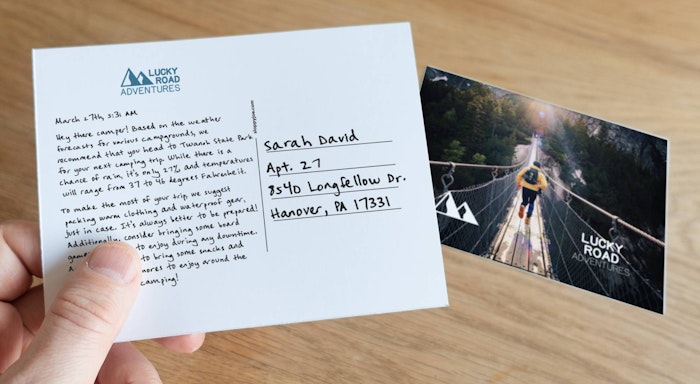 LUCKY
ROAD
ADVENTURES
March 27th, 5:31 AM
Hey there camper! Based on the weather
forecasts for various campgrounds, we
recommend that you head to Twanoh State Park
for your next camping trip. While there is a
chance of rain, it's only 27% and temperatures
will range from 37 to 46 degrees Fahrenheit.
To make the most of your trip, we suggest
packing warm clothing and waterproof gear,
just in case. It's always better to be prepared!
Additionally, consider bringing some board
to enjoy during any downtime.
to bring some snacks and
to enjoy around the
camping!
Sarah David
Apt. 27
8540 Longfellow Dr.
Hanover, PA 17331
LUCKY
ROAD
ADVENTURES